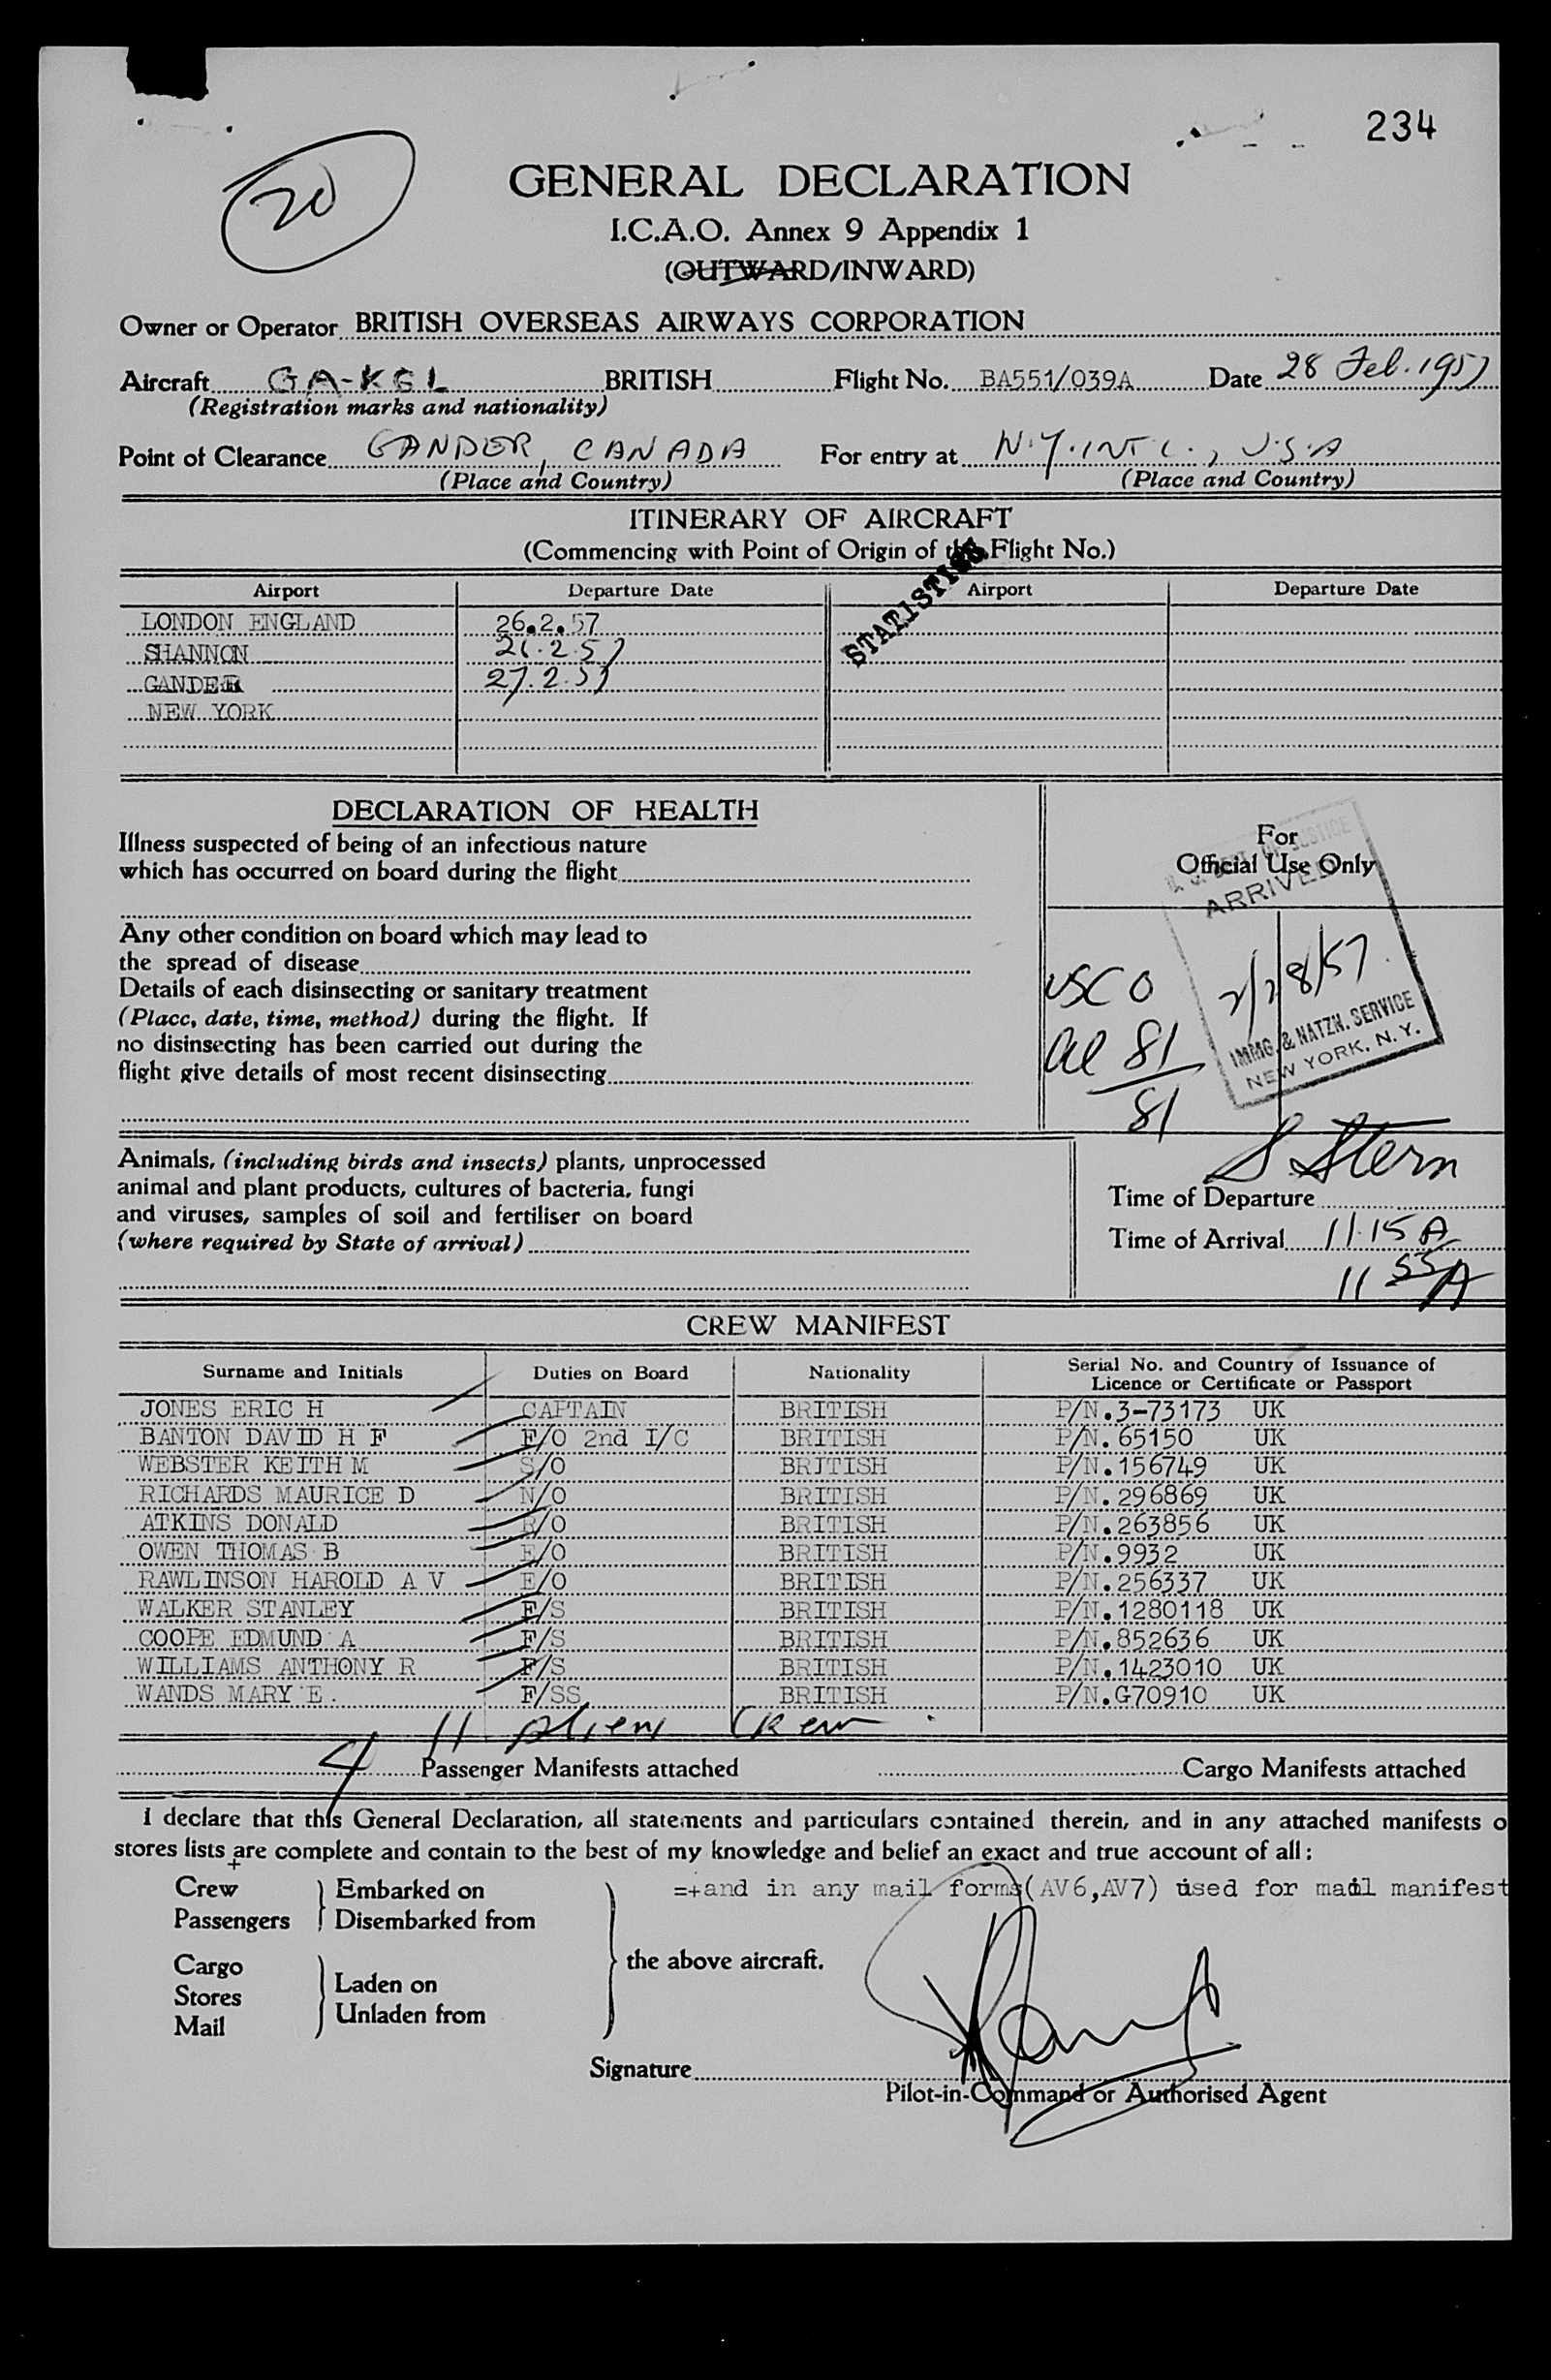 234
20
GENERAL DECLARATION
I.C.A.O. Annex 9 Appendix 1
(OUTWARD/INWARD)
Owner or Operator BRITISH OVERSEAS AIRWAYS CORPORATION
Aircraft GA-KGL BRITISH Flight No. BA551/039A Date 28 Feb. 1957
(Registration marks and nationality)
Point of Clearance GANDER, CANADA For entry at N.Y. INT'L., U.S.A
(Place and Country) (Place and Country)
ITINERARY OF AIRCRAFT
(Commencing with Point of Origin of the Flight No.)
STATISTICS
Airport Departure Date Airport Departure Date
LONDON ENGLAND 26.2.57
SHANNON 26.2.57
GANDER 27.2.57
NEW YORK
DECLARATION OF HEALTH
Illness suspected of being of an infectious nature
which has occurred on board during the flight
Any other condition on board which may lead to
the spread of disease
Details of each disinsecting or sanitary treatment
(Place, date, time, method) during the flight. If
no disinsecting has been carried out during the
flight give details of most recent disinsecting
For
Official Use Only
U.S. DEPT. OF JUSTICE
ARRIVED
2/28/57
IMMG. & NATZN. SERVICE
NEW YORK, N. Y.
USC 0
Al 81
81
S Stern
Animals, (including birds and insects) plants, unprocessed
animal and plant products, cultures of bacteria, fungi
and viruses, samples of soil and fertiliser on board
(where required by State of arrival)
Time of Departure
Time of Arrival 11.15 A
11 55 A
CREW MANIFEST
Surname and Initials Duties on Board Nationality Serial No. and Country of Issuance of
Licence or Certificate or Passport
JONES ERIC H CAPTAIN BRITISH P/N.3-73173 UK
BANTON DAVID H F F/O 2nd I/C BRITISH P/N.65150 UK
WEBSTER KEITH M S/O BRITISH P/N.156749 UK
RICHARDS MAURICE D N/O BRITISH P/N.296869 UK
ATKINS DONALD R/O BRITISH P/N.263856 UK
OWEN THOMAS B E/O BRITISH P/N.9932 UK
RAWLINSON HAROLD A V E/O BRITISH P/N.256337 UK
WALKER STANLEY F/S BRITISH P/N.1280118 UK
COOPE EDMUND A F/S BRITISH P/N.852636 UK
WILLIAMS ANTHONY R F/S BRITISH P/N.1423010 UK
WANDS MARY E. F/SS BRITISH P/N.G70910 UK
11 Alien Crew
4 Passenger Manifests attached Cargo Manifests attached
I declare that this General Declaration, all statements and particulars contained therein, and in any attached manifests o
stores lists are complete and contain to the best of my knowledge and belief an exact and true account of all:
+
Crew Embarked on =+and in any mail forms(AV6,AV7) used for mail manifest
Passengers Disembarked from
the above aircraft.
Cargo
Stores Laden on
Mail Unladen from
Signature
Pilot-in-Command or Authorised Agent